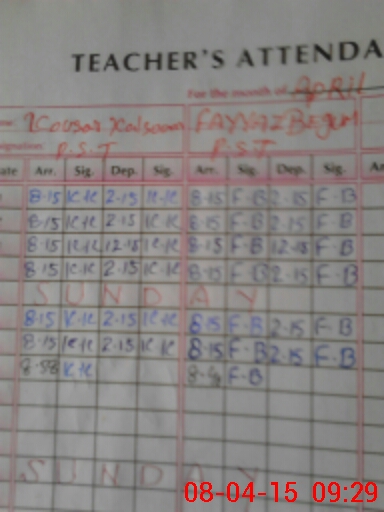 TEACHER'S ATTENDA
For the month of April
Kousar Kalsoom FAYYAZ BEGUM
P.S.T P.S.T
ate Arr. Sig. Dep. Sig. Arr. Sig. Dep. Sig. Ar
8-15 K-K 2-15 K-K 8-15 F-B 2-15 F-B
8-15 K-K 2-15 K-K 8-15 F-B 2-15 F-B
8-15 K-K 12-15 K-K 8-15 F-B 12-15 F-B
8-15 K-K 2-15 K-K 8-15 F-B 2-15 F-B
S U N D A Y
8-15 K-K 2-15 K-K 8-15 F-B 2-15 F-B
8-15 K-K 2-15 K-K 8-15 F-B 2-15 F-B
8-58 K-K F-B
S U N D A Y
08-04-15 09:29